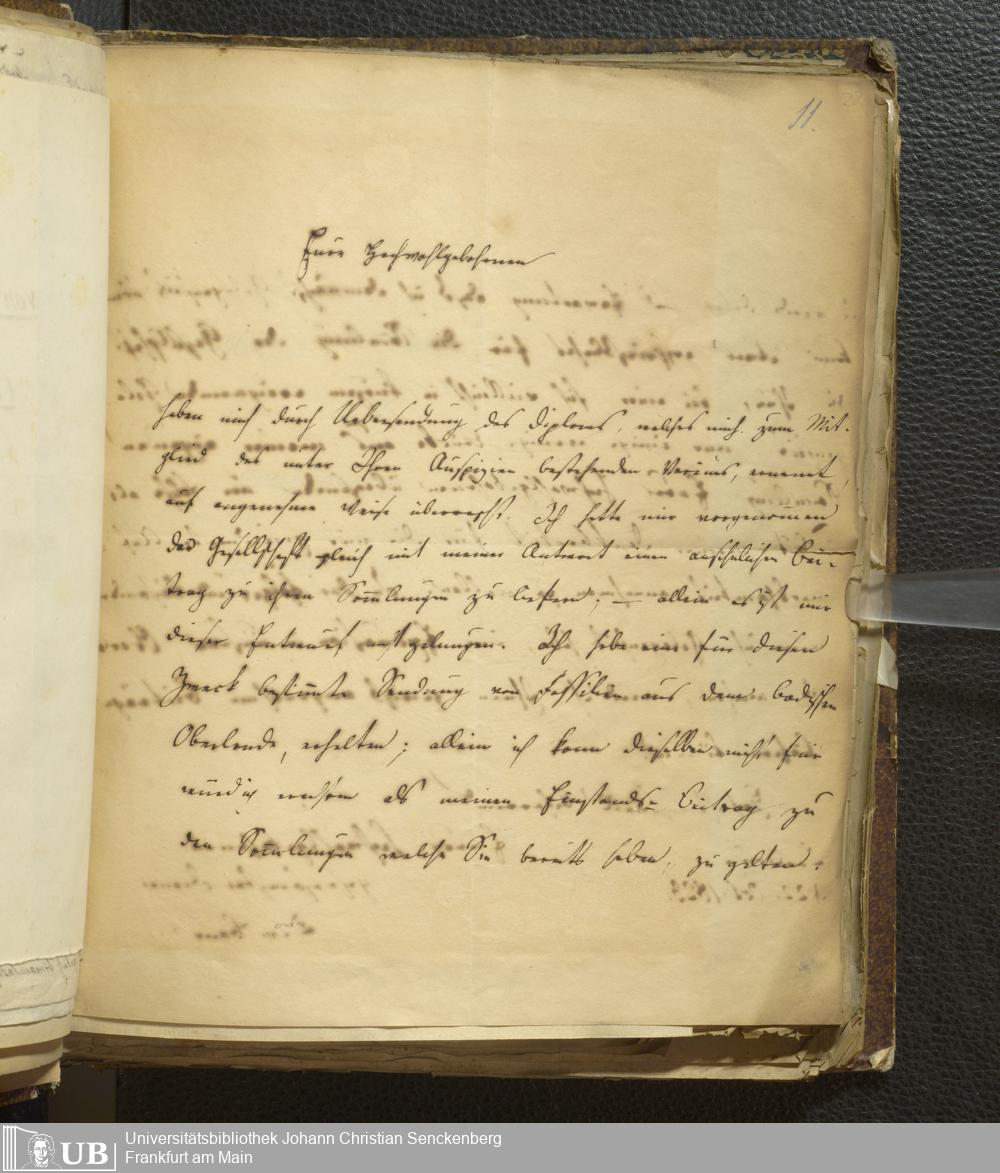 11.
Eure Hochwohlgebohrnen
haben mich durch Uebersendung des Diploms, welches mich zum Mit-
glied des unter Ihren Auspizien bestehenden Vereins, ernennt,
auf angenehme Weise überrascht. Ich hatte mir vorgenommen
der Gesellschaft gleich mit meiner Antwort einen ansehnlichen Bei-
trag zu ihren Sammlungen zu liefern; — allein es ist mir
dieser Entwurf nicht gelungen. Ich habe eine für diesen
Zweck bestimmte Sendung von Fossilien aus dem badischen
Oberlande, erhalten; allein ich kann dieselben nicht für
würdig erachten als meinen Einstands-Beitrag zu
den Sammlungen welche Sie bereits haben, zu gelten.
UB
Universitätsbibliothek Johann Christian Senckenberg
Frankfurt am Main